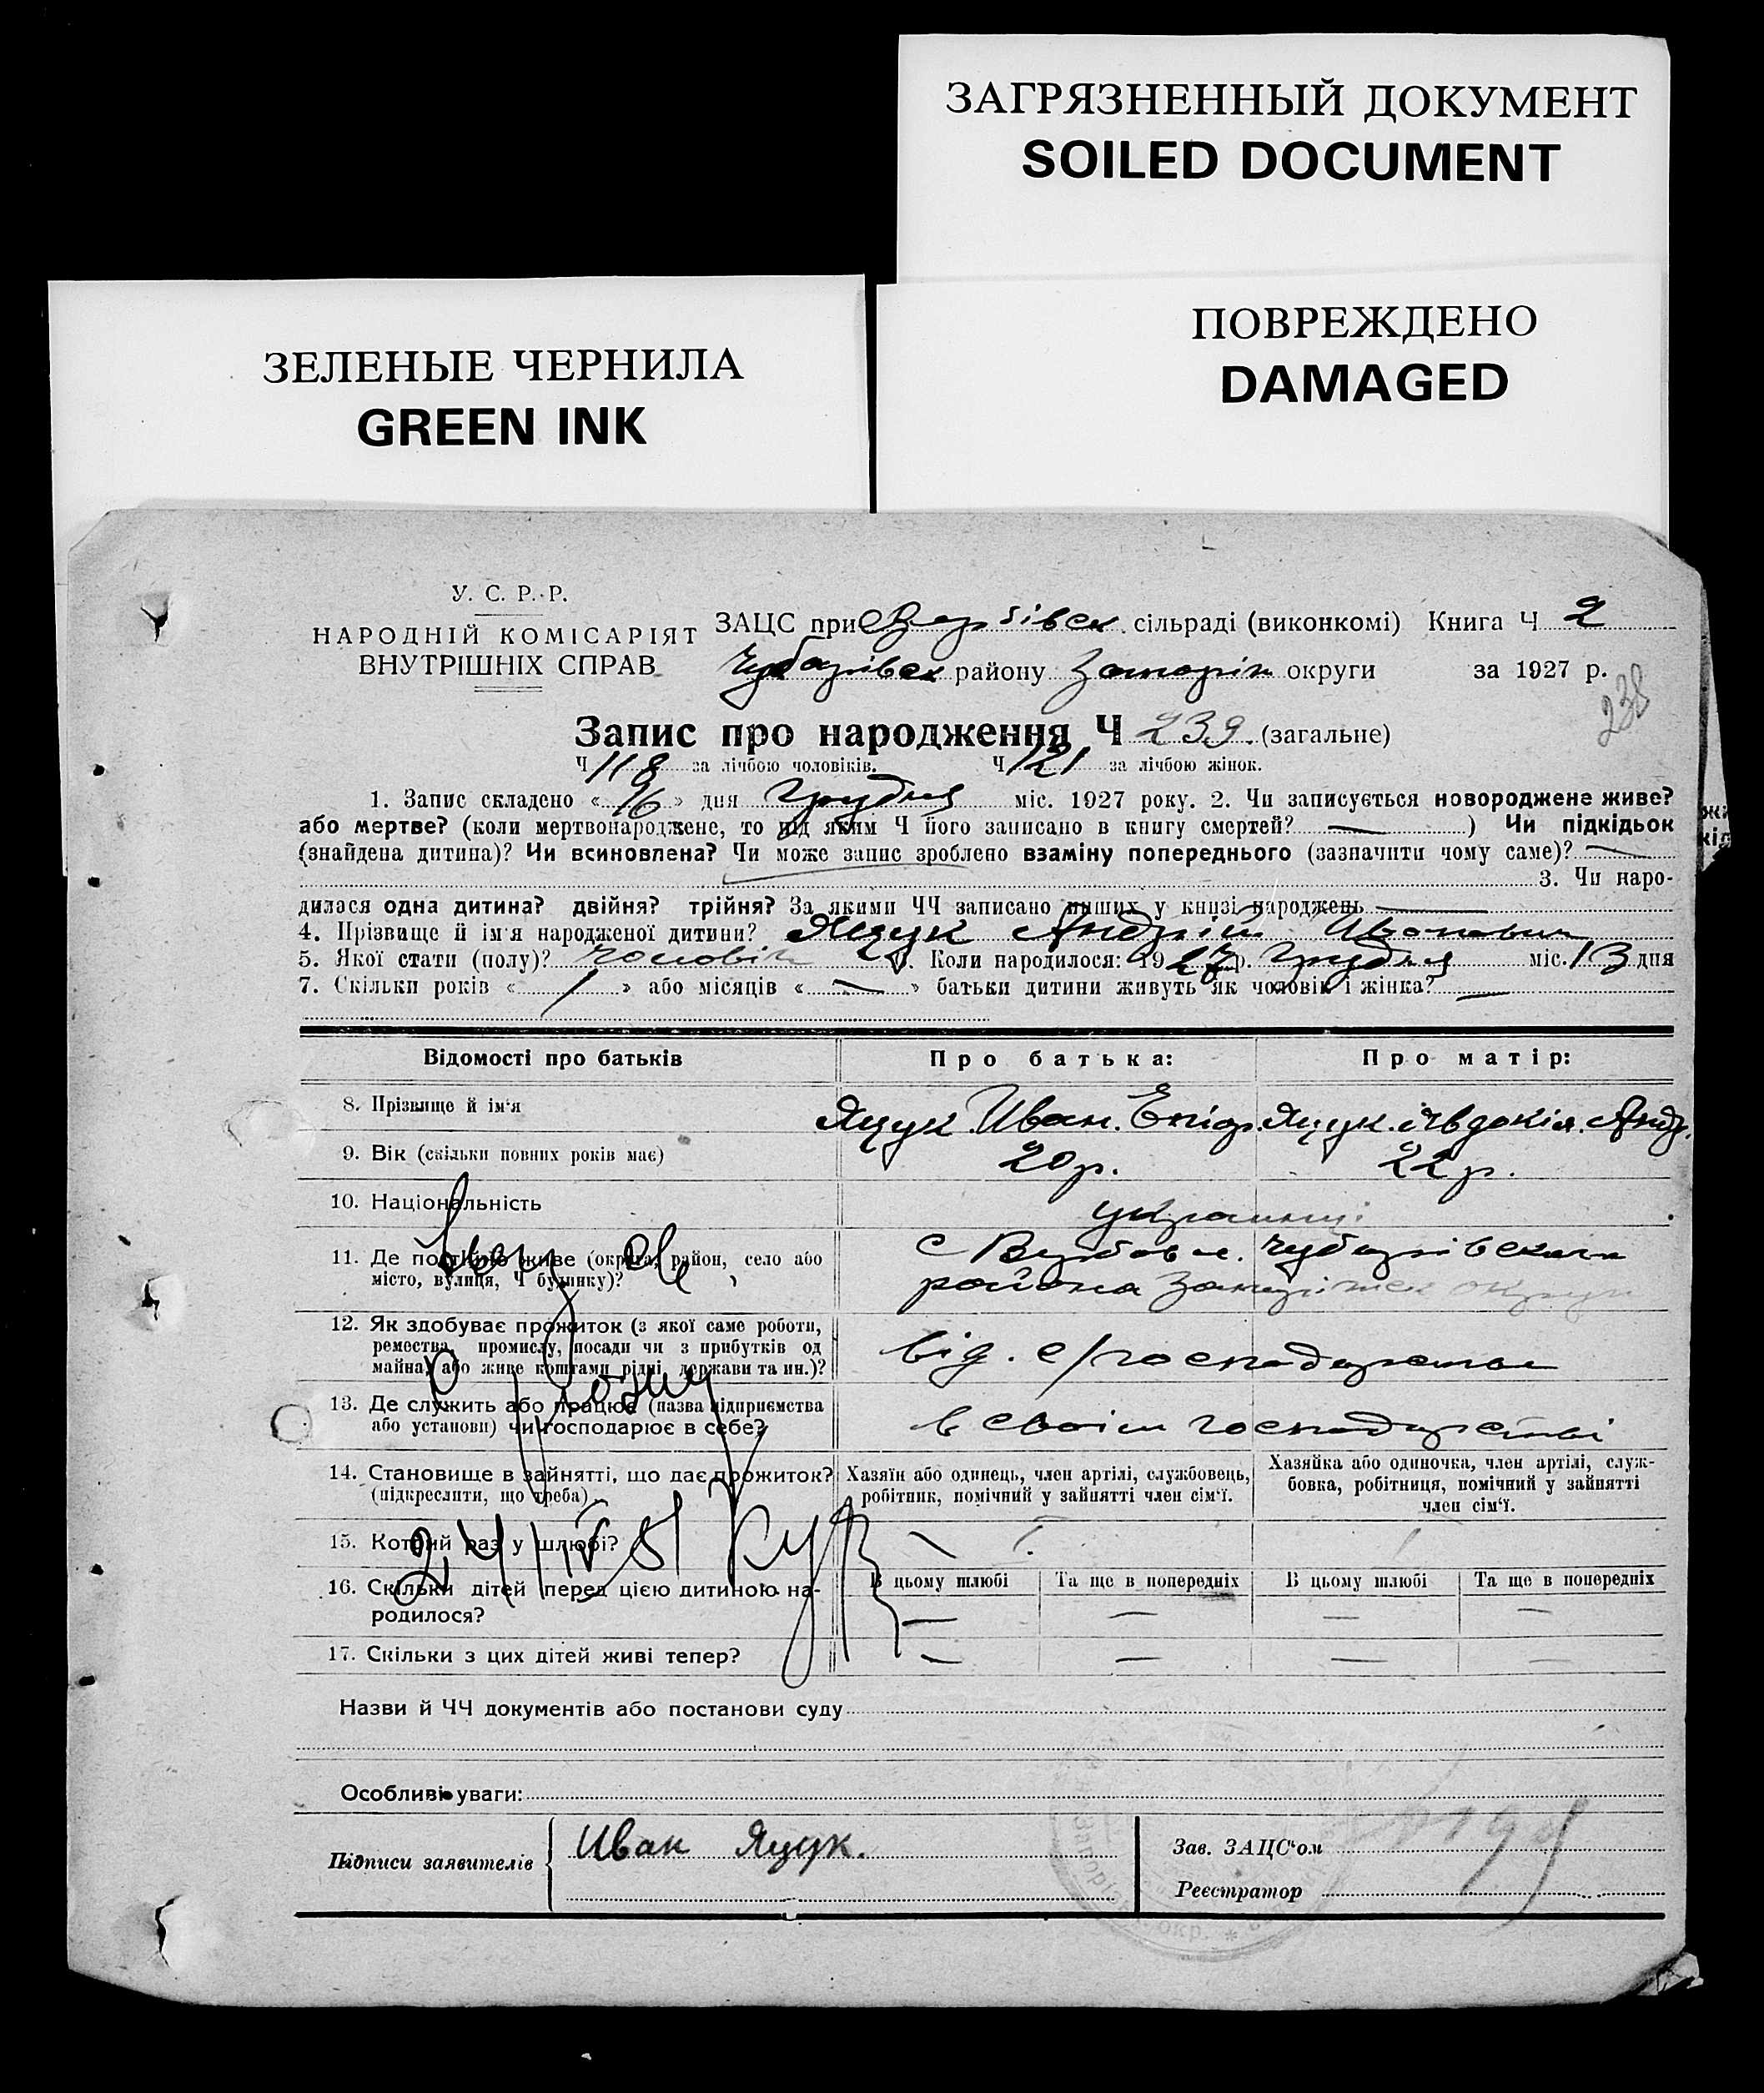 ЗАГРЯЗНЕННЫЙ ДОКУМЕНТ
SOILED DOCUMENT
ПОВРЕЖДЕНО
DAMAGED
ЗЕЛЕНЫЕ ЧЕРНИЛА
GREEN INK
У. С. Р. Р.
НАРОДНІЙ КОМІСАРІЯТ
ВНУТРІШНІХ СПРАВ
ЗАЦС при Вербівск сільраді (виконкомі) Книга Ч 2
Чубарівск району Запоріж округи за 1927 р.
238
Запис про народження Ч 239 (загальне)
Ч 118 за лічбою чоловіків. Ч 121 за лічбою жінок.
1. Запис складено « » дня Грудня міс. 1927 року. 2. Чи записується новороджене живе?
або мертве? (коли мертвонароджене, то під яким Ч його записано в книгу смертей? — ) Чи підкідьок
(знайдена дитина)? Чи всиновлена? Чи може запис зроблено взаміну попереднього (зазначити чому саме)? —
3. Чи наро-
дилася одна дитина? двійня? трійня? За якими ЧЧ записано инших у книзі народжень —
4. Прізвище й ім'я народженої дитини? Яцук Андрій Иванович
5. Якої стати (полу)? чоловік 6. Коли народилося: 1927 р. Грудня міс. 13 дня
7. Скільки років « 1 » або місяців « — » батьки дитини живуть як чоловік і жінка? —
Відомості про батьків
Про батька:
Про матір:
8. Прізвище й ім'я
Яцук Иван. Епіф.
Яцук Івдокія. Андр.
9. Вік (скільки повних років має)
20 р.
22 р.
10. Національність
українці
11. Де постійно живе (округа, район, село або
місто, вулиця, Ч будинку)?
с Вербове. Чубарівського
района Запоріжск округи
12. Як здобуває прожиток (з якої саме роботи,
ремества, промислу, посади чи з прибутків од
майна, або живе коштами рідні, держави та ин.)?
від. с/господарства
13. Де служить або працює (назва підприємства
або установи) чи господарює в себе?
в своїм господарстві
14. Становище в зайнятті, що дає прожиток?
(підкреслити, що треба)
Хазяїн або одинець, член артілі, службовець,
робітник, помічний у зайнятті член сім'ї.
Хазяйка або одиночка, член артілі, служ-
бовка, робітниця, помічний у зайнятті
член сім'ї.
15. Котрий раз у шлюбі?
16. Скільки дітей перед цією дитиною на-
родилося?
В цьому шлюбі
Та ще в попередніх
В цьому шлюбі
Та ще в попередніх
— — — —
17. Скільки з цих дітей живі тепер?
— — — —
Назви й ЧЧ документів або постанови суду
Особливі уваги:
Підписи заявителів
Иван Яцук.
Зав. ЗАЦС'ом
Реєстратор